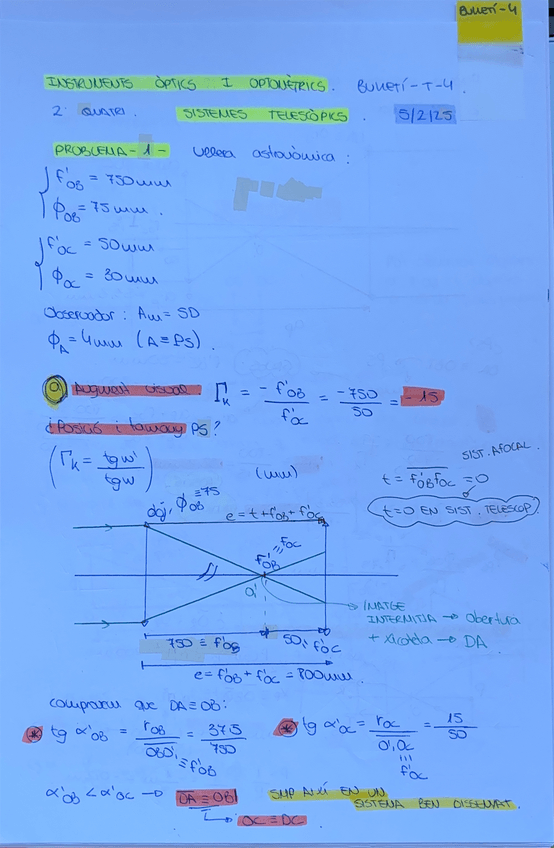 BULLETÍ-4
INSTRUMENTS ÒPTICS I OPTOMÈTRICS. BULLETÍ-T-4.
2º QUATRI. SISTEMES TELESCÒPICS. 5/2/25
PROBLEMA-1- Ullera astronòmica:
f'OB = 750mm
ϕOB = 75mm.
f'OC = 50mm
ϕOC = 30mm
Observador: Am = 5D
ϕA = 4mm (A ≡ PS).
a) Augment visual Γk = -f'OB / f'OC = -750 / 50 = -15
¿Posició i tamany PS?
(Γk = tgw' / tgw)
(mm)
SIST. AFOCAL
t = F'OB FOC = 0
t=0 EN SIST. TELESCOP.
obj, ϕOB ≡ 75
e = t + f'OB + f'OC
F'OB ≡ FOC
a'
IMATGE
INTERMITJA → obertura
+ xicoteta → DA
750 ≡ f'OB 50, f'OC
e = f'OB + f'OC = 800mm.
comprovem que DA ≡ OB:
* tg α'OB = rOB / OBO' = 37,5 / 750
≡ f'OB
* tg α'OC = rOC / O'OC = 15 / 50
≡ f'OC
α'OB < α'OC → DA ≡ OB SMP AIXÍ EN UN
SISTEMA BEN DISSENYAT.
→ OC ≡ DC